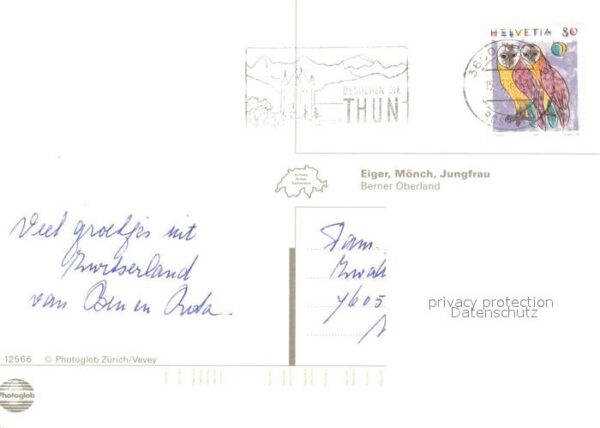 HELVETIA 80
BESUCHEN SIE
THUN
Eiger, Mönch, Jungfrau
Berner Oberland
Veel groetjes uit
Zwitserland
van Ben en
Fam.
4605
privacy protection
Datenschutz
12566 © Photoglob Zürich/Vevey
Photoglob